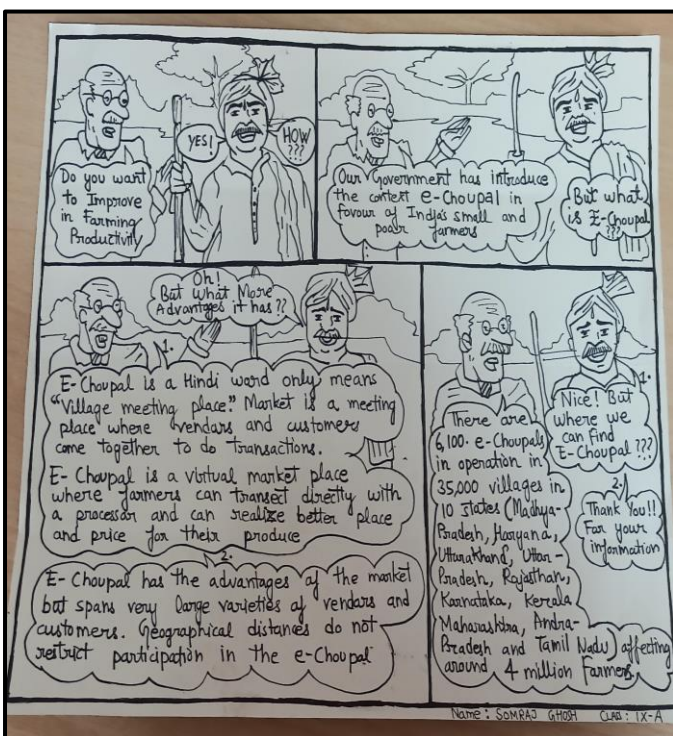 Do you want
to Improve
in Farming
Productivity
YES!
HOW
???
Our Government has introduce
the context e-Choupal in
favour of India's small and
poor farmers
But what
is E-Choupal
???
Oh!
But What More
Advantages it has??
1.
E-Choupal is a Hindi word only means
"Village meeting place." Market is a meeting
place where vendars and customers
come together to do transactions.
E-Choupal is a virtual market place
where farmers can transect directly with
a processor and can realize better place
and price for their produce
2.
E-Choupal has the advantages of the market
but spans very large varieties of vendars and
customers. Geographical distances do not
restrict participation in the e-Choupal
1.
Nice! But
where we
can find
E-Choupal ???
There are
6,100. e-Choupals
in operation in
35,000 villages in
10 states (Madhya-
Pradesh, Haryana,
Uttarakhand, Uttar-
Pradesh, Rajasthan,
Karnataka, Kerala
Maharashtra, Andra-
Pradesh and Tamil Nadu) affecting
around 4 million Farmers
2.
Thank You!!
For your
information
Name: SOMRAJ GHOSH CLASS: IX-A